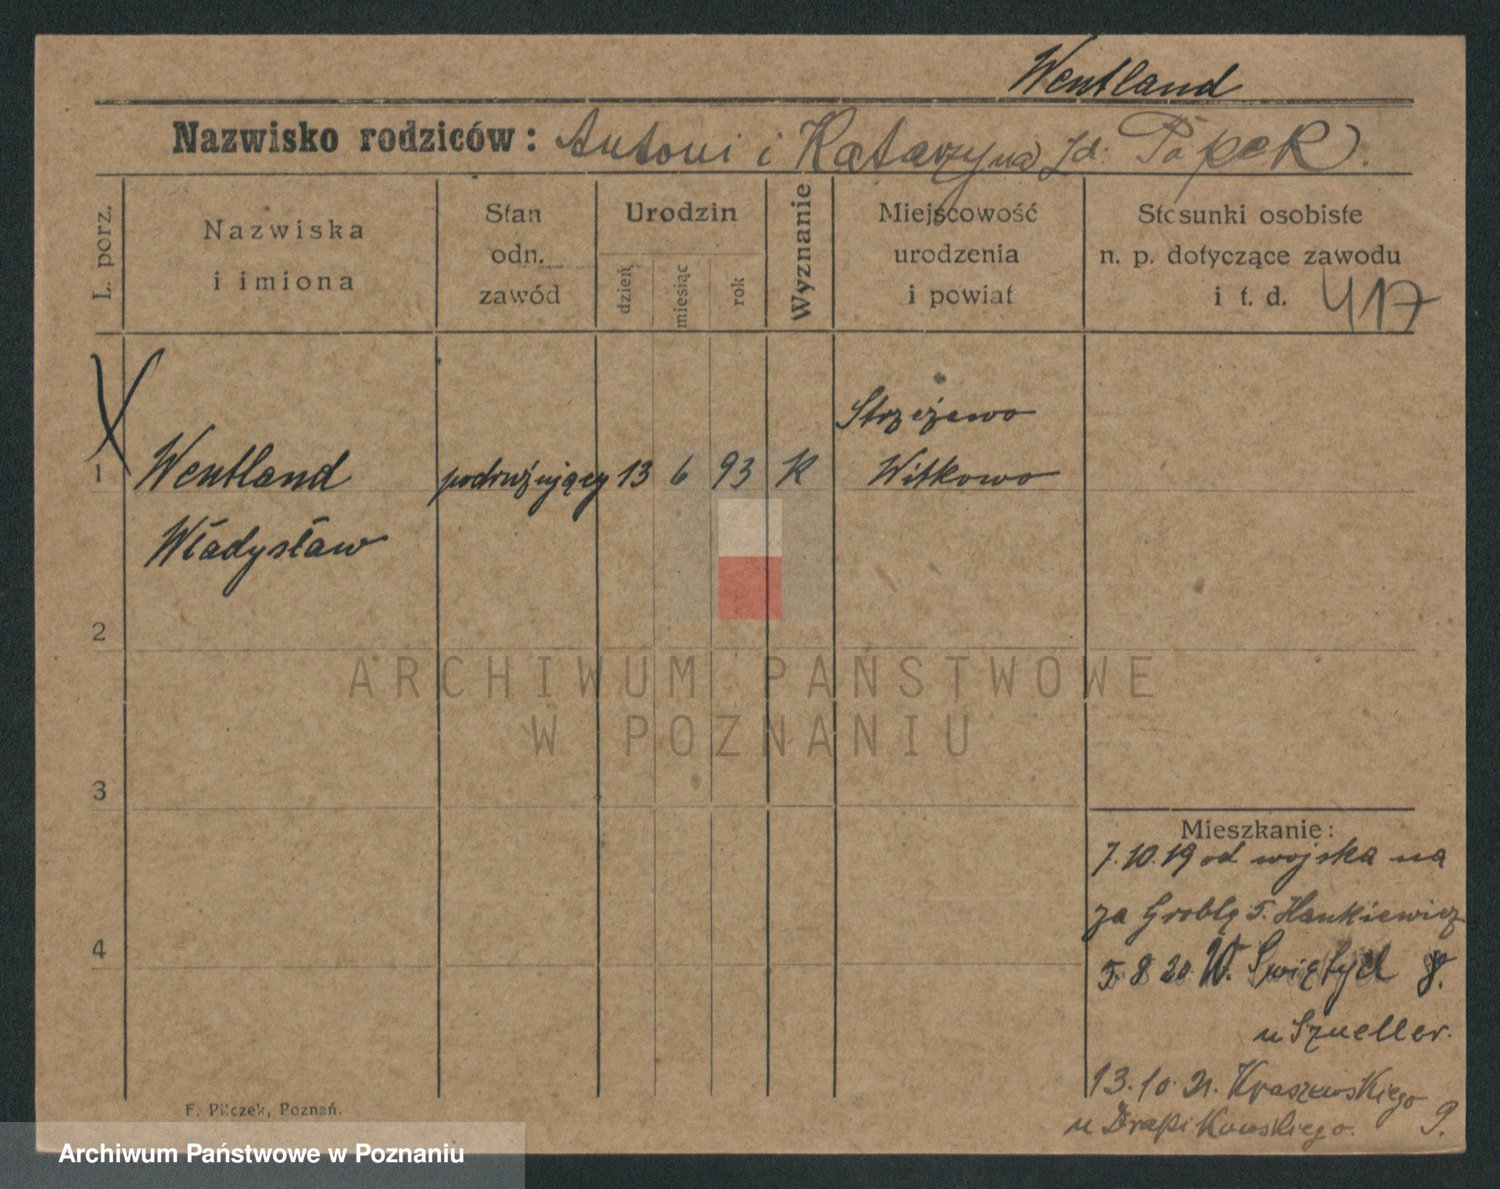 Wentland
Nazwisko rodziców: Antoni i Katarzyna Papek.
L. porz.
Nazwiska
i imiona
Stan
odn.
zawód
Urodzin
dzień
miesiąc
rok
Wyznanie
Miejscowość
urodzenia
i powiat
Stosunki osobiste
n. p. dotyczące zawodu
i t. d. 417
Strzeżewo
1 Wentland podróżujący 13 6 93 K Witkowo
Władysław
2
3
4
ARCHIWUM PAŃSTWOWE
W POZNANIU
Mieszkanie:
7.10.19 od wojska na
za Groblę 5. Hankiewicz
5.8 20. W. Świętych 8.
u Szueller.
13.10.21. Kraszewskiego 9.
u Drapikowskiego.
F. Pilczek, Poznań.
Archiwum Państwowe w Poznaniu